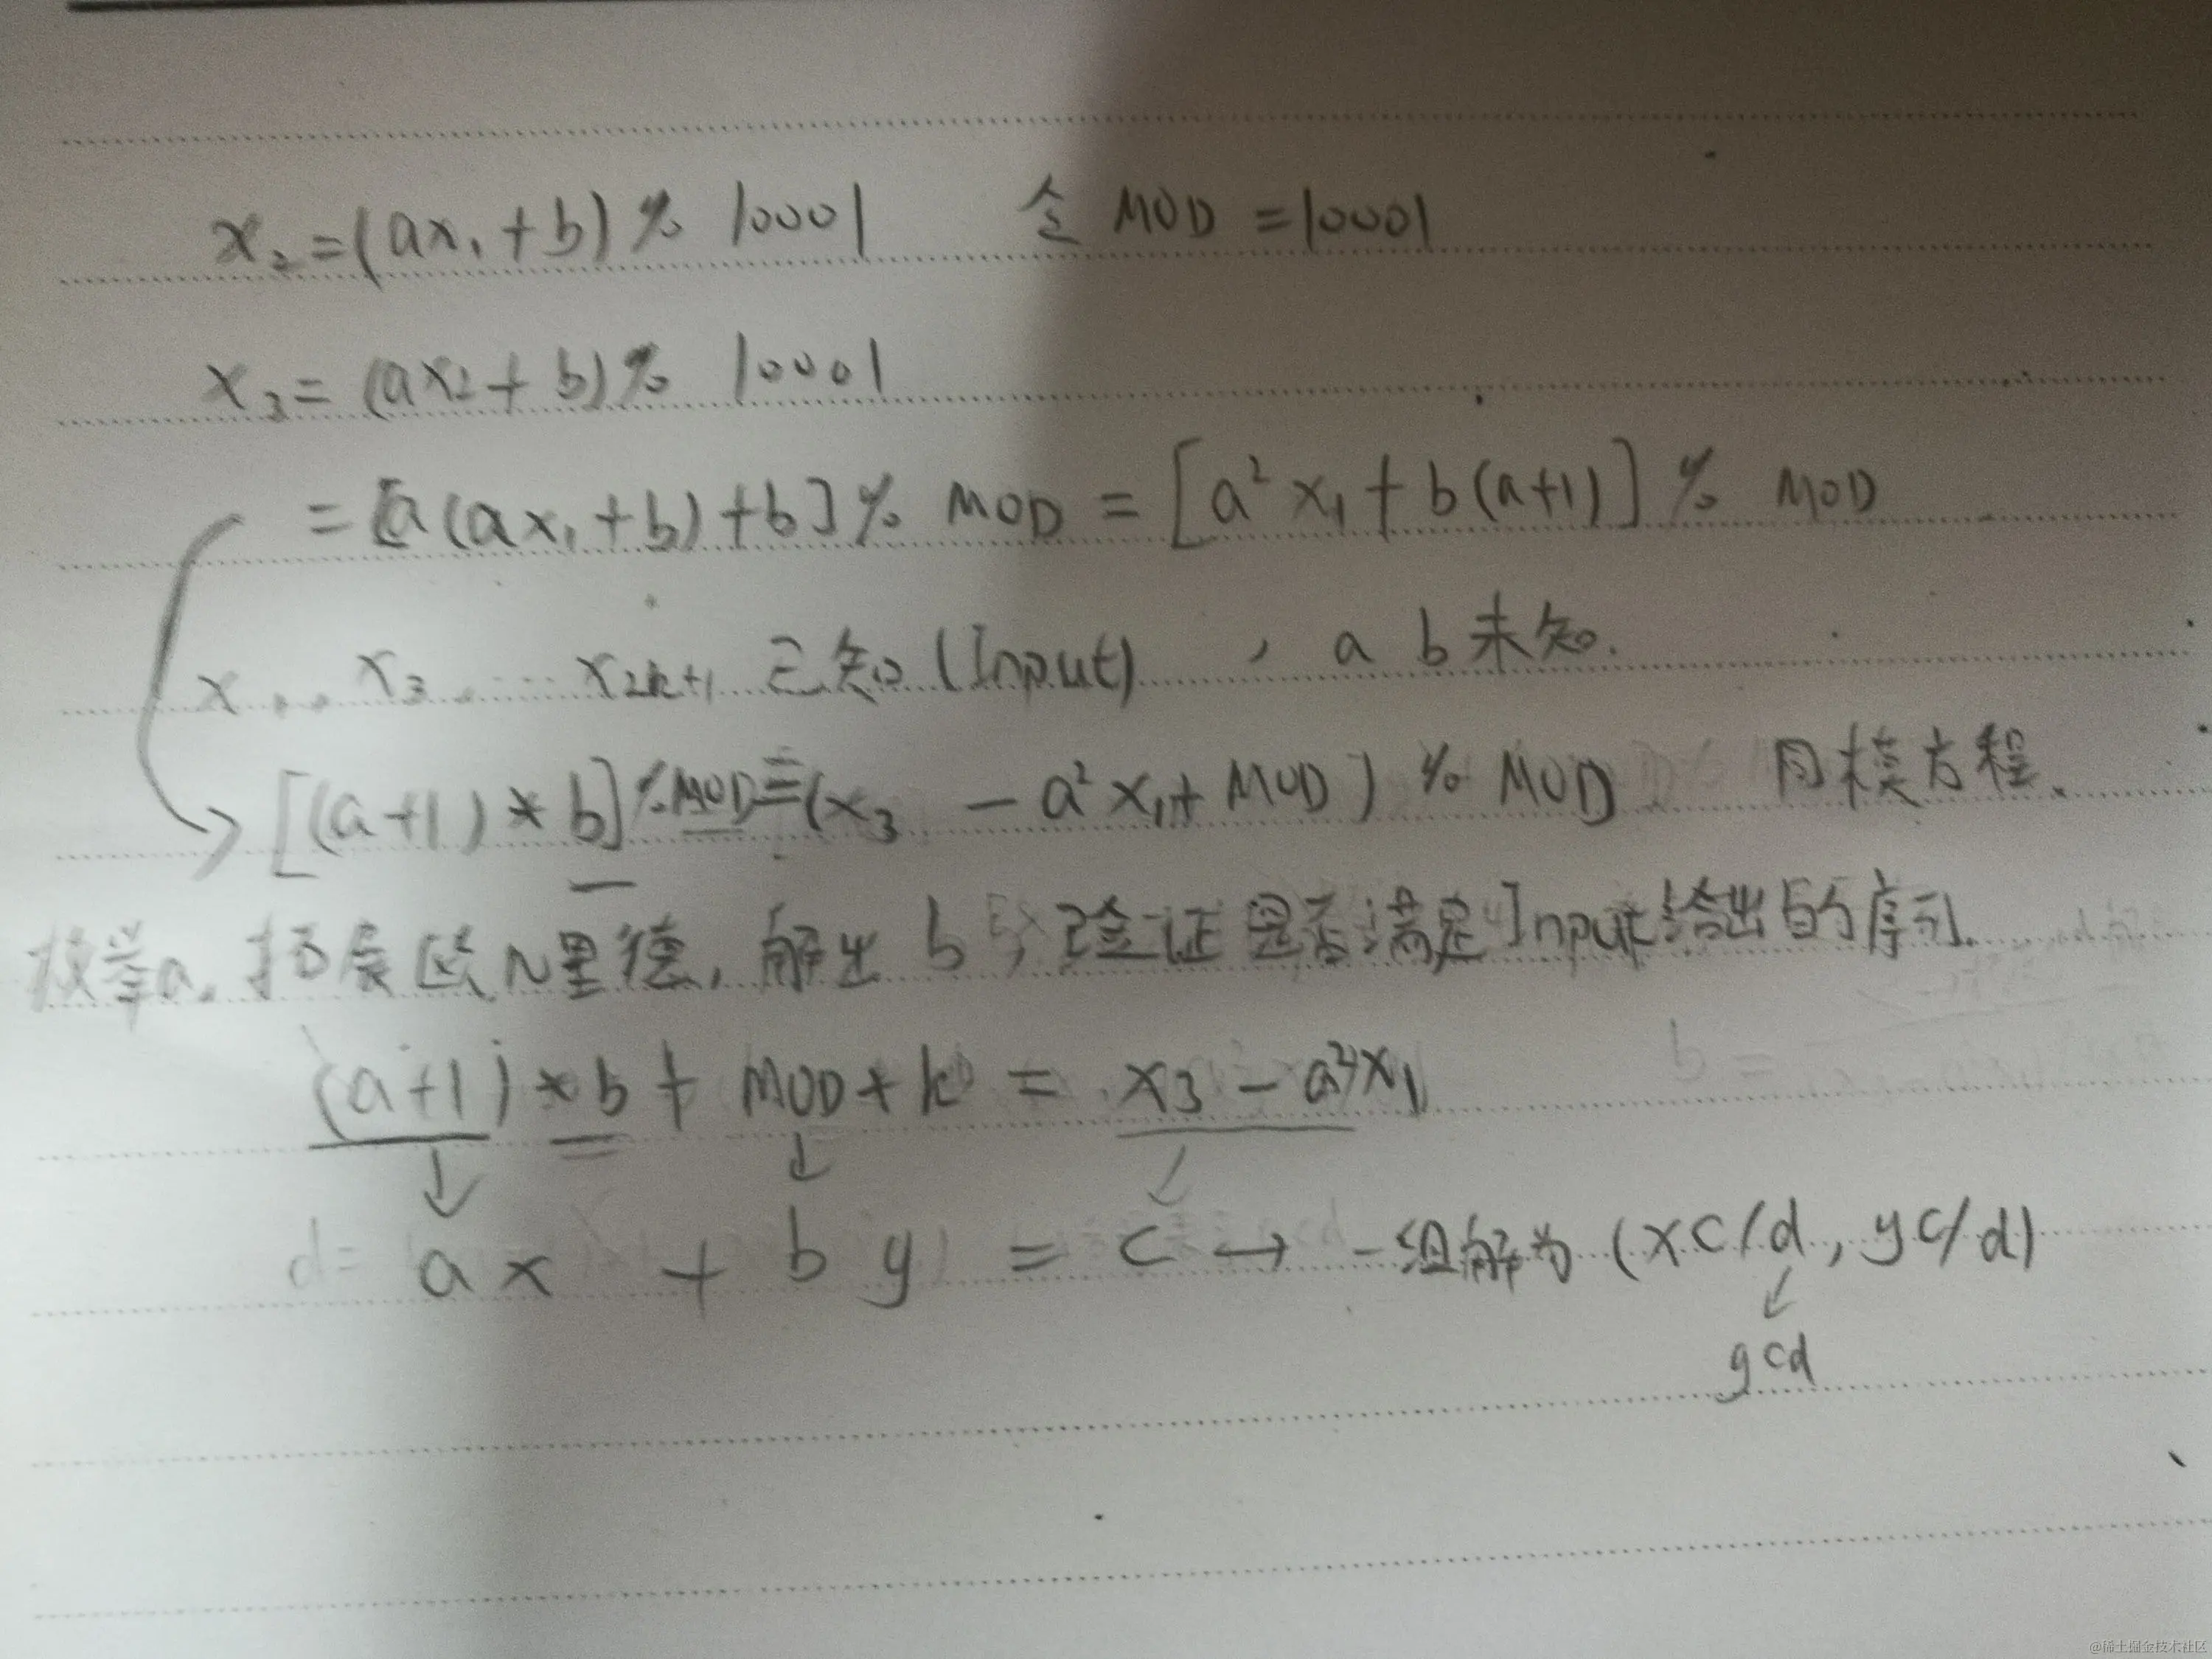 x₂=(ax₁+b)% 10001 令 MOD =10001
x₃= (ax₂+b)% 10001
= [a(ax₁+b)+b]% MOD = [a²x₁+b(a+1)] % MOD
x₁, x₃, … x₂ₖ₊₁ 已知(Input), a b未知.
[(a+1)*b]%MOD≡(x₃ - a²x₁+MOD) % MOD 同模方程.
枚举a,拓展欧几里德,解出b,验证是否满足Input给出的序列.
(a+1)*b + MOD*k = x₃-a²*x₁
d= ax + by = c → 一组解为(xc/d, yc/d)
gcd
@稀土掘金技术社区